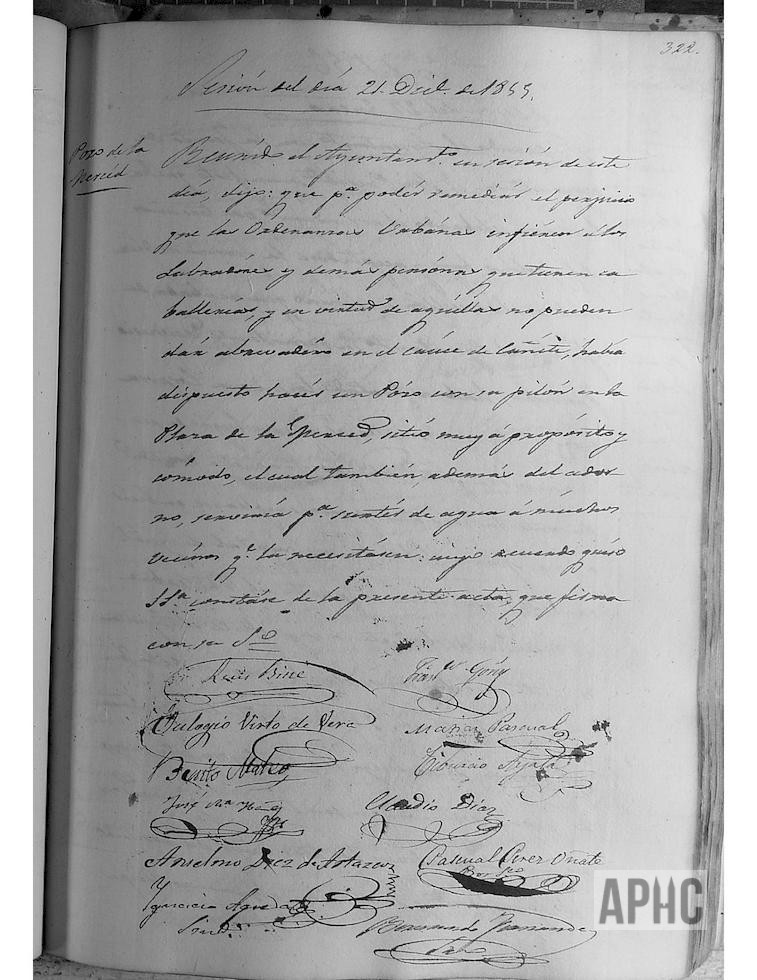 322.
Sesión del día 21. Dicb. de 1855.
Pozo de la
Merced
Reunido el Ayuntamto. en sesión de este
día, dijo: que pa. podér remediár el perjuicio
que las Ordenanzas Urbanas infieren á los
Labradores y demás persónas que tienen ca
ballerias, y en virtud de aquéllas no pueden
dar abrevadéro en el cáuce de Cañéte, había
dispuesto hacér un Pózo con su pilón en la
Plaza de la Merced, sitio muy á propósito y
cómodo, el cual también, además del ador
no, serviría pa. surtír de agua á muchos
vecinos qe. la necesitasen: cuyo acuerdo quiso
SSa. constáse de la presente acta, que firma
con su So.
Luis Biné
Franco. Góny
Eulogio Virto de Vera
Marian Pascual
Benito Mateo
Tiburcio Ayala
José Ma.
Claudio Díaz
Anselmo Diez de Artazcoz
Pascual Perez Oñate
Por Sto
Ygnacio Agreda
Sind.
Bernardo